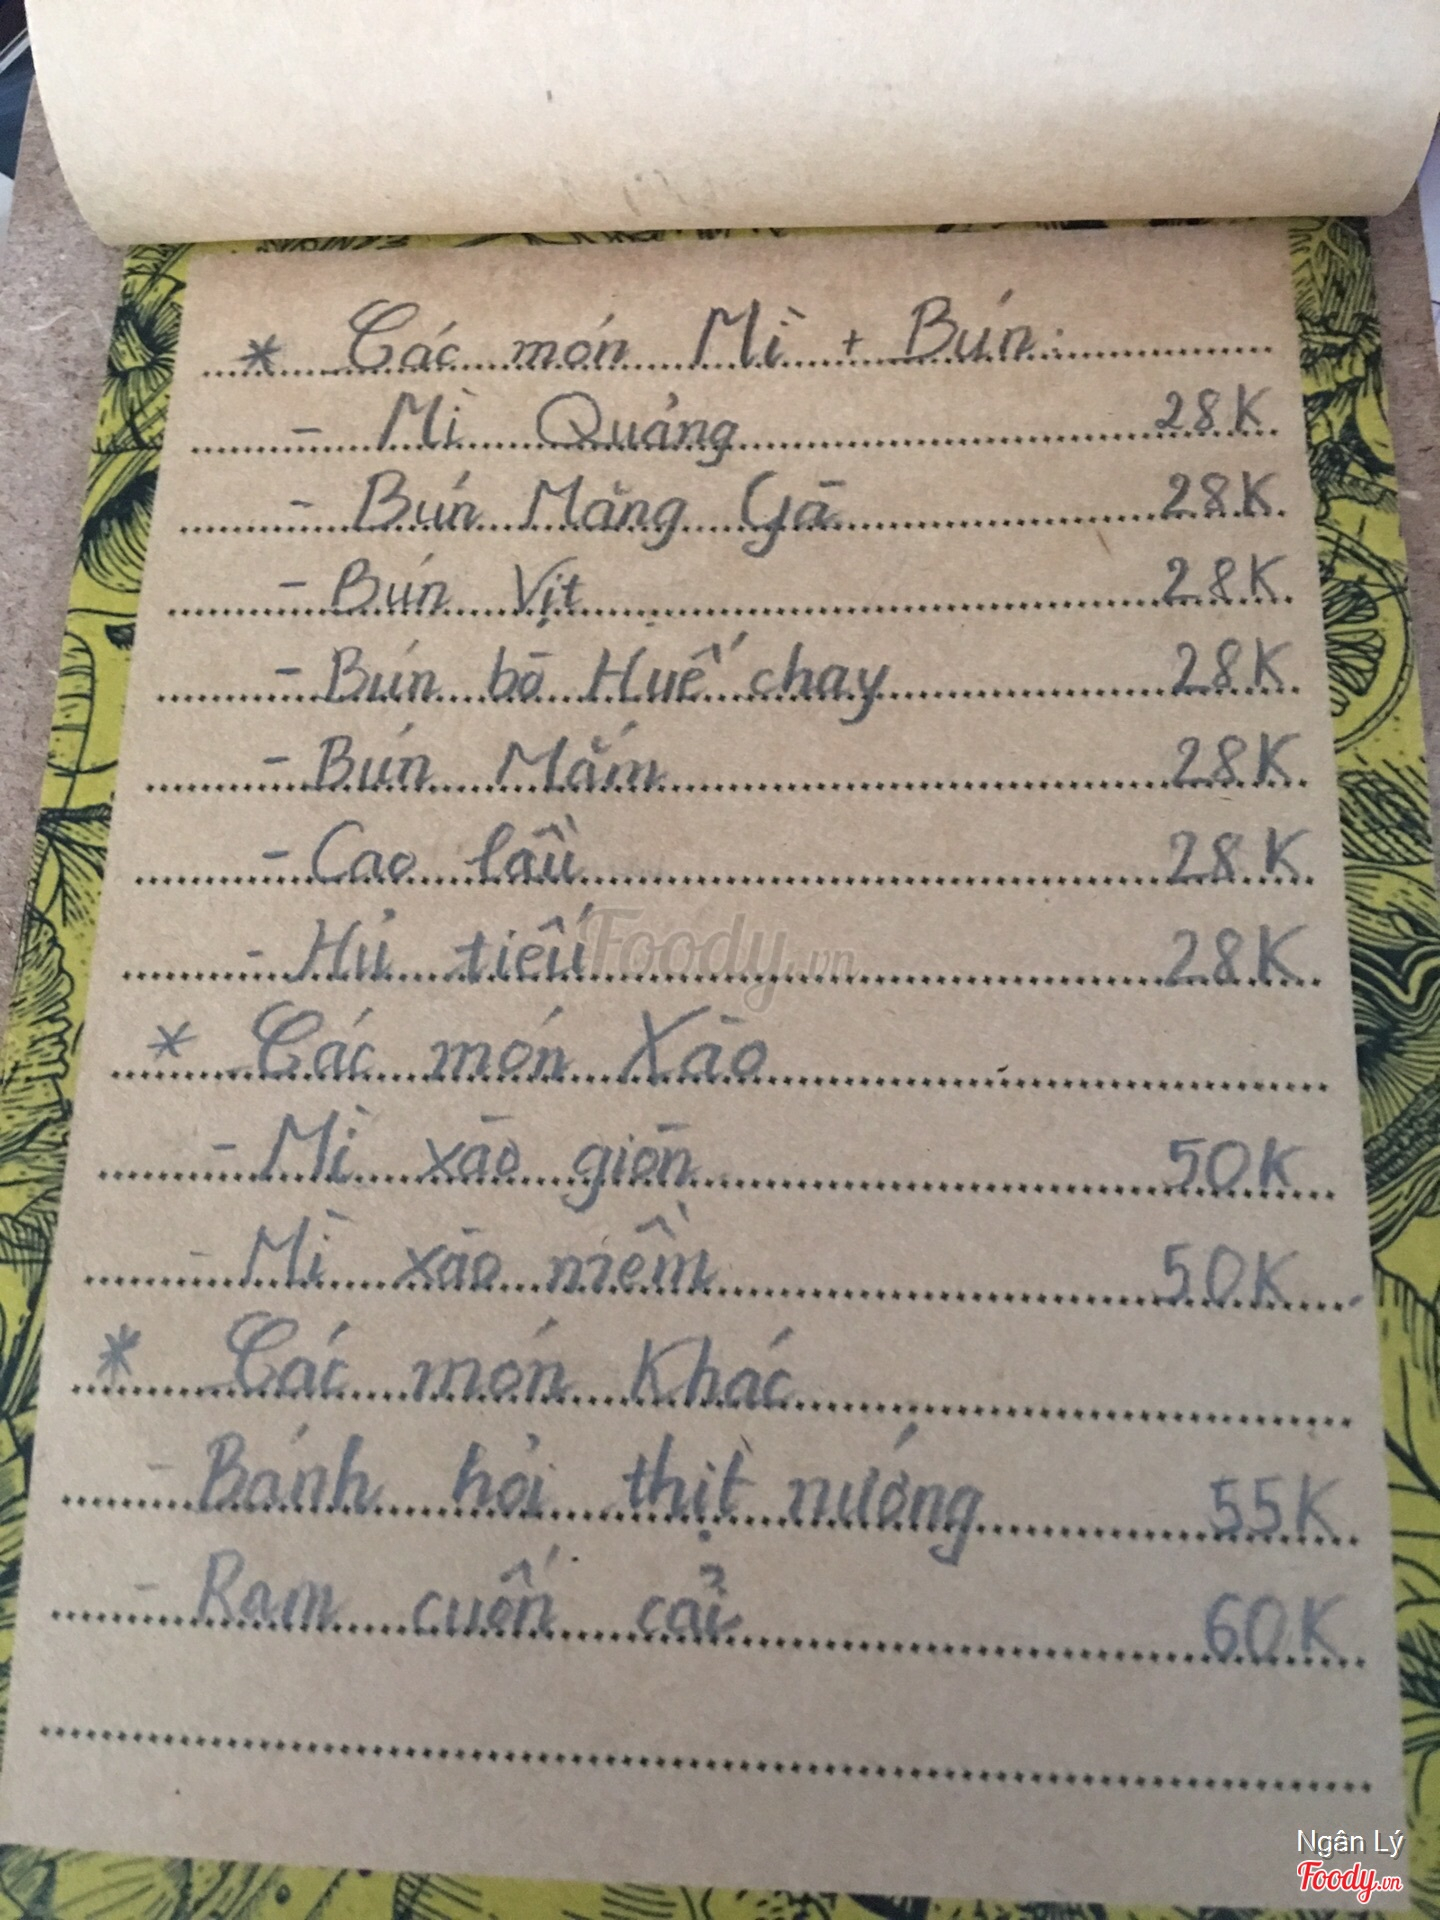 * Các món Mì + Bún:
- Mì Quảng 28K
- Bún Măng Gà 28K
- Bún Vịt 28K
- Bún bò Huế chay 28K
- Bún Mắm 28K
- Cao lầu 28K
- Hủ tiếu 28K
* Các món Xào
- Mì xào giòn 50K
- Mì xào mềm 50K
* Các món Khác
- Bánh hỏi thịt nướng 55K
- Ram cuốn cải 60K
Foody.vn
Ngân Lý
Foody.vn